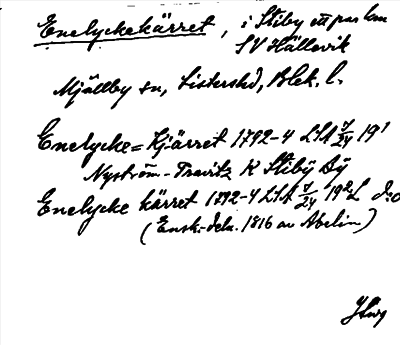 Enelyckekärret, i Stiby ett par km
SV Hällevik
Mjällby sn, Listershd, Blek. l.
Enelycke=Kjärret 1792-4 LSA 7/24 19¹
Nyström-Trevitz K Stiby By
Enelycke kärret 1792-4 LSA 7/24 19² L d:o
(Ensk.-deln. 1816 av Abelin)